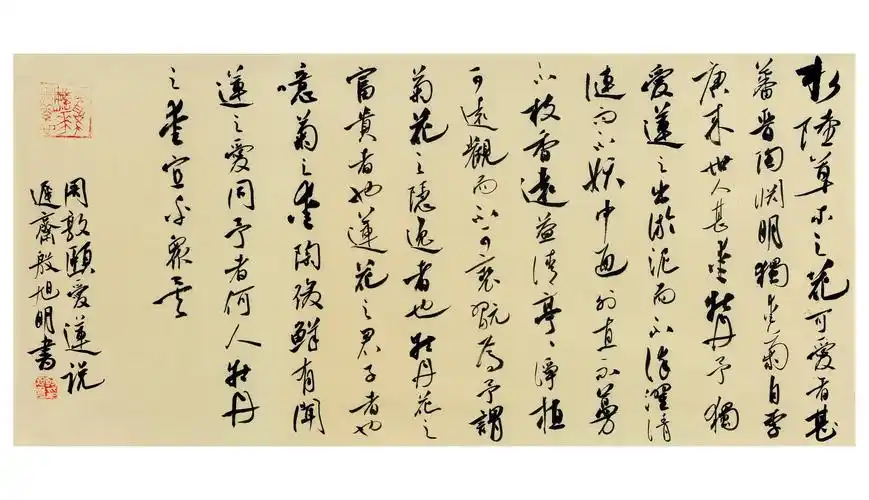 水陸草木之花可愛者甚
蕃晋陶渊明獨愛菊自李
唐来世人甚愛牡丹予獨
愛蓮之出淤泥而不染濯清
漣而不妖中通外直不蔓
不枝香遠益清亭〻淨植
可遠觀而不可褻翫焉予謂
菊花之隱逸者也牡丹花之
富貴者也蓮花之君子者也
噫菊之愛陶後鮮有聞
蓮之愛同予者何人牡丹
之愛宜乎衆矣
周敦頤愛蓮説
遲齋殷旭明書